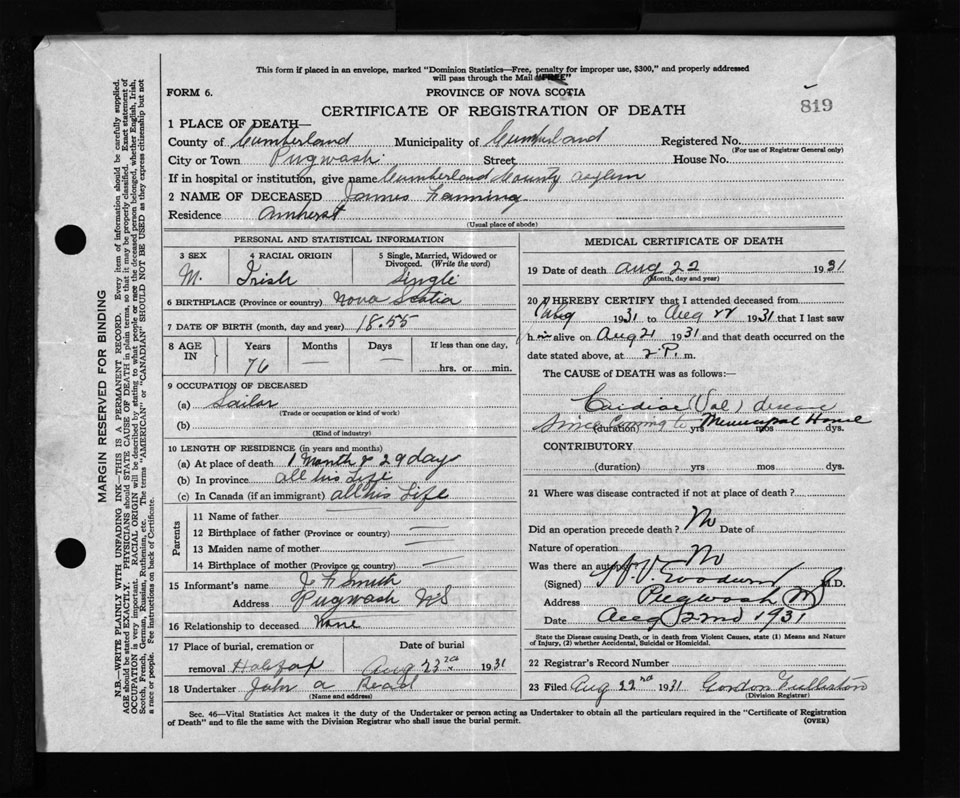 This form if placed in an envelope, marked "Dominion Statistics—Free, penalty for improper use, $300," and properly addressed
will pass through the Mail "FREE"
FORM 6.
PROVINCE OF NOVA SCOTIA
819
CERTIFICATE OF REGISTRATION OF DEATH
1 PLACE OF DEATH—
County of Cumberland Municipality of Cumberland Registered No.
(For use of Registrar General only)
City or Town Pugwash Street House No.
If in hospital or institution, give name Cumberland County Asylum
2 NAME OF DECEASED James Lanning
Residence Amherst
(Usual place of abode)
PERSONAL AND STATISTICAL INFORMATION
3 SEX 4 RACIAL ORIGIN 5 Single, Married, Widowed or
Divorced. (Write the word)
M. Irish Single
6 BIRTHPLACE (Province or country) Nova Scotia
7 DATE OF BIRTH (month, day and year) 1855
8 AGE IN Years Months Days If less than one day,
76 — — hrs. or min.
9 OCCUPATION OF DECEASED
(a) Sailor
(Trade or occupation or kind of work)
(b)
(Kind of industry)
10 LENGTH OF RESIDENCE (in years and months)
(a) At place of death 1 Month & 29 day
(b) In province all his Life
(c) In Canada (if an immigrant) all his Life
Parents
11 Name of father
12 Birthplace of father (Province or country)
13 Maiden name of mother
14 Birthplace of mother (Province or country)
15 Informant's name J F Smith
Address Pugwash NS
16 Relationship to deceased None
17 Place of burial, cremation or Date of burial
removal Halifax Aug 23rd 1931
18 Undertaker John a Read
(Name and address)
MEDICAL CERTIFICATE OF DEATH
19 Date of death Aug 22 1931
(Month, day and year)
20 I HEREBY CERTIFY that I attended deceased from
Aug 1931 to Aug 22 1931 that I last saw
him alive on Aug 21 1931 and that death occurred on the
date stated above, at 2 P. m.
The CAUSE of DEATH was as follows:—
Cardiac (Val) disease
since coming to Municipal Home
(duration) yrs mos dys.
CONTRIBUTORY
(duration) yrs mos dys.
21 Where was disease contracted if not at place of death?
Did an operation precede death? No Date of
Nature of operation
Was there an autopsy No
(Signed) Goodwin M.D.
Address Pugwash NS
Date Aug 22nd 1931
State the Disease causing Death, or in death from Violent Causes, state (1) Means and Nature
of Injury, (2) whether Accidental, Suicidal or Homicidal.
22 Registrar's Record Number
23 Filed Aug 22nd 1931 Gordon
(Division Registrar)
Sec. 46—Vital Statistics Act makes it the duty of the Undertaker or person acting as Undertaker to obtain all the particulars required in the "Certificate of Registration
of Death" and to file the same with the Division Registrar who shall issue the burial permit.
(OVER)
MARGIN RESERVED FOR BINDING
N.B.—WRITE PLAINLY WITH UNFADING INK—THIS IS A PERMANENT RECORD. Every item of information should be carefully supplied.
AGE should be stated EXACTLY. PHYSICIANS should STATE CAUSE OF DEATH in plain terms, so that it may be properly classified. Exact statement of
OCCUPATION is very important. RACIAL ORIGIN will be described by stating to what people or race the deceased person belonged, whether English, Irish,
Scotch, French, German, Russian, Ruthenian, etc. The terms "AMERICAN" or "CANADIAN" SHOULD NOT BE USED as they express citizenship but not
a race or people. See instructions on back of Certificate.